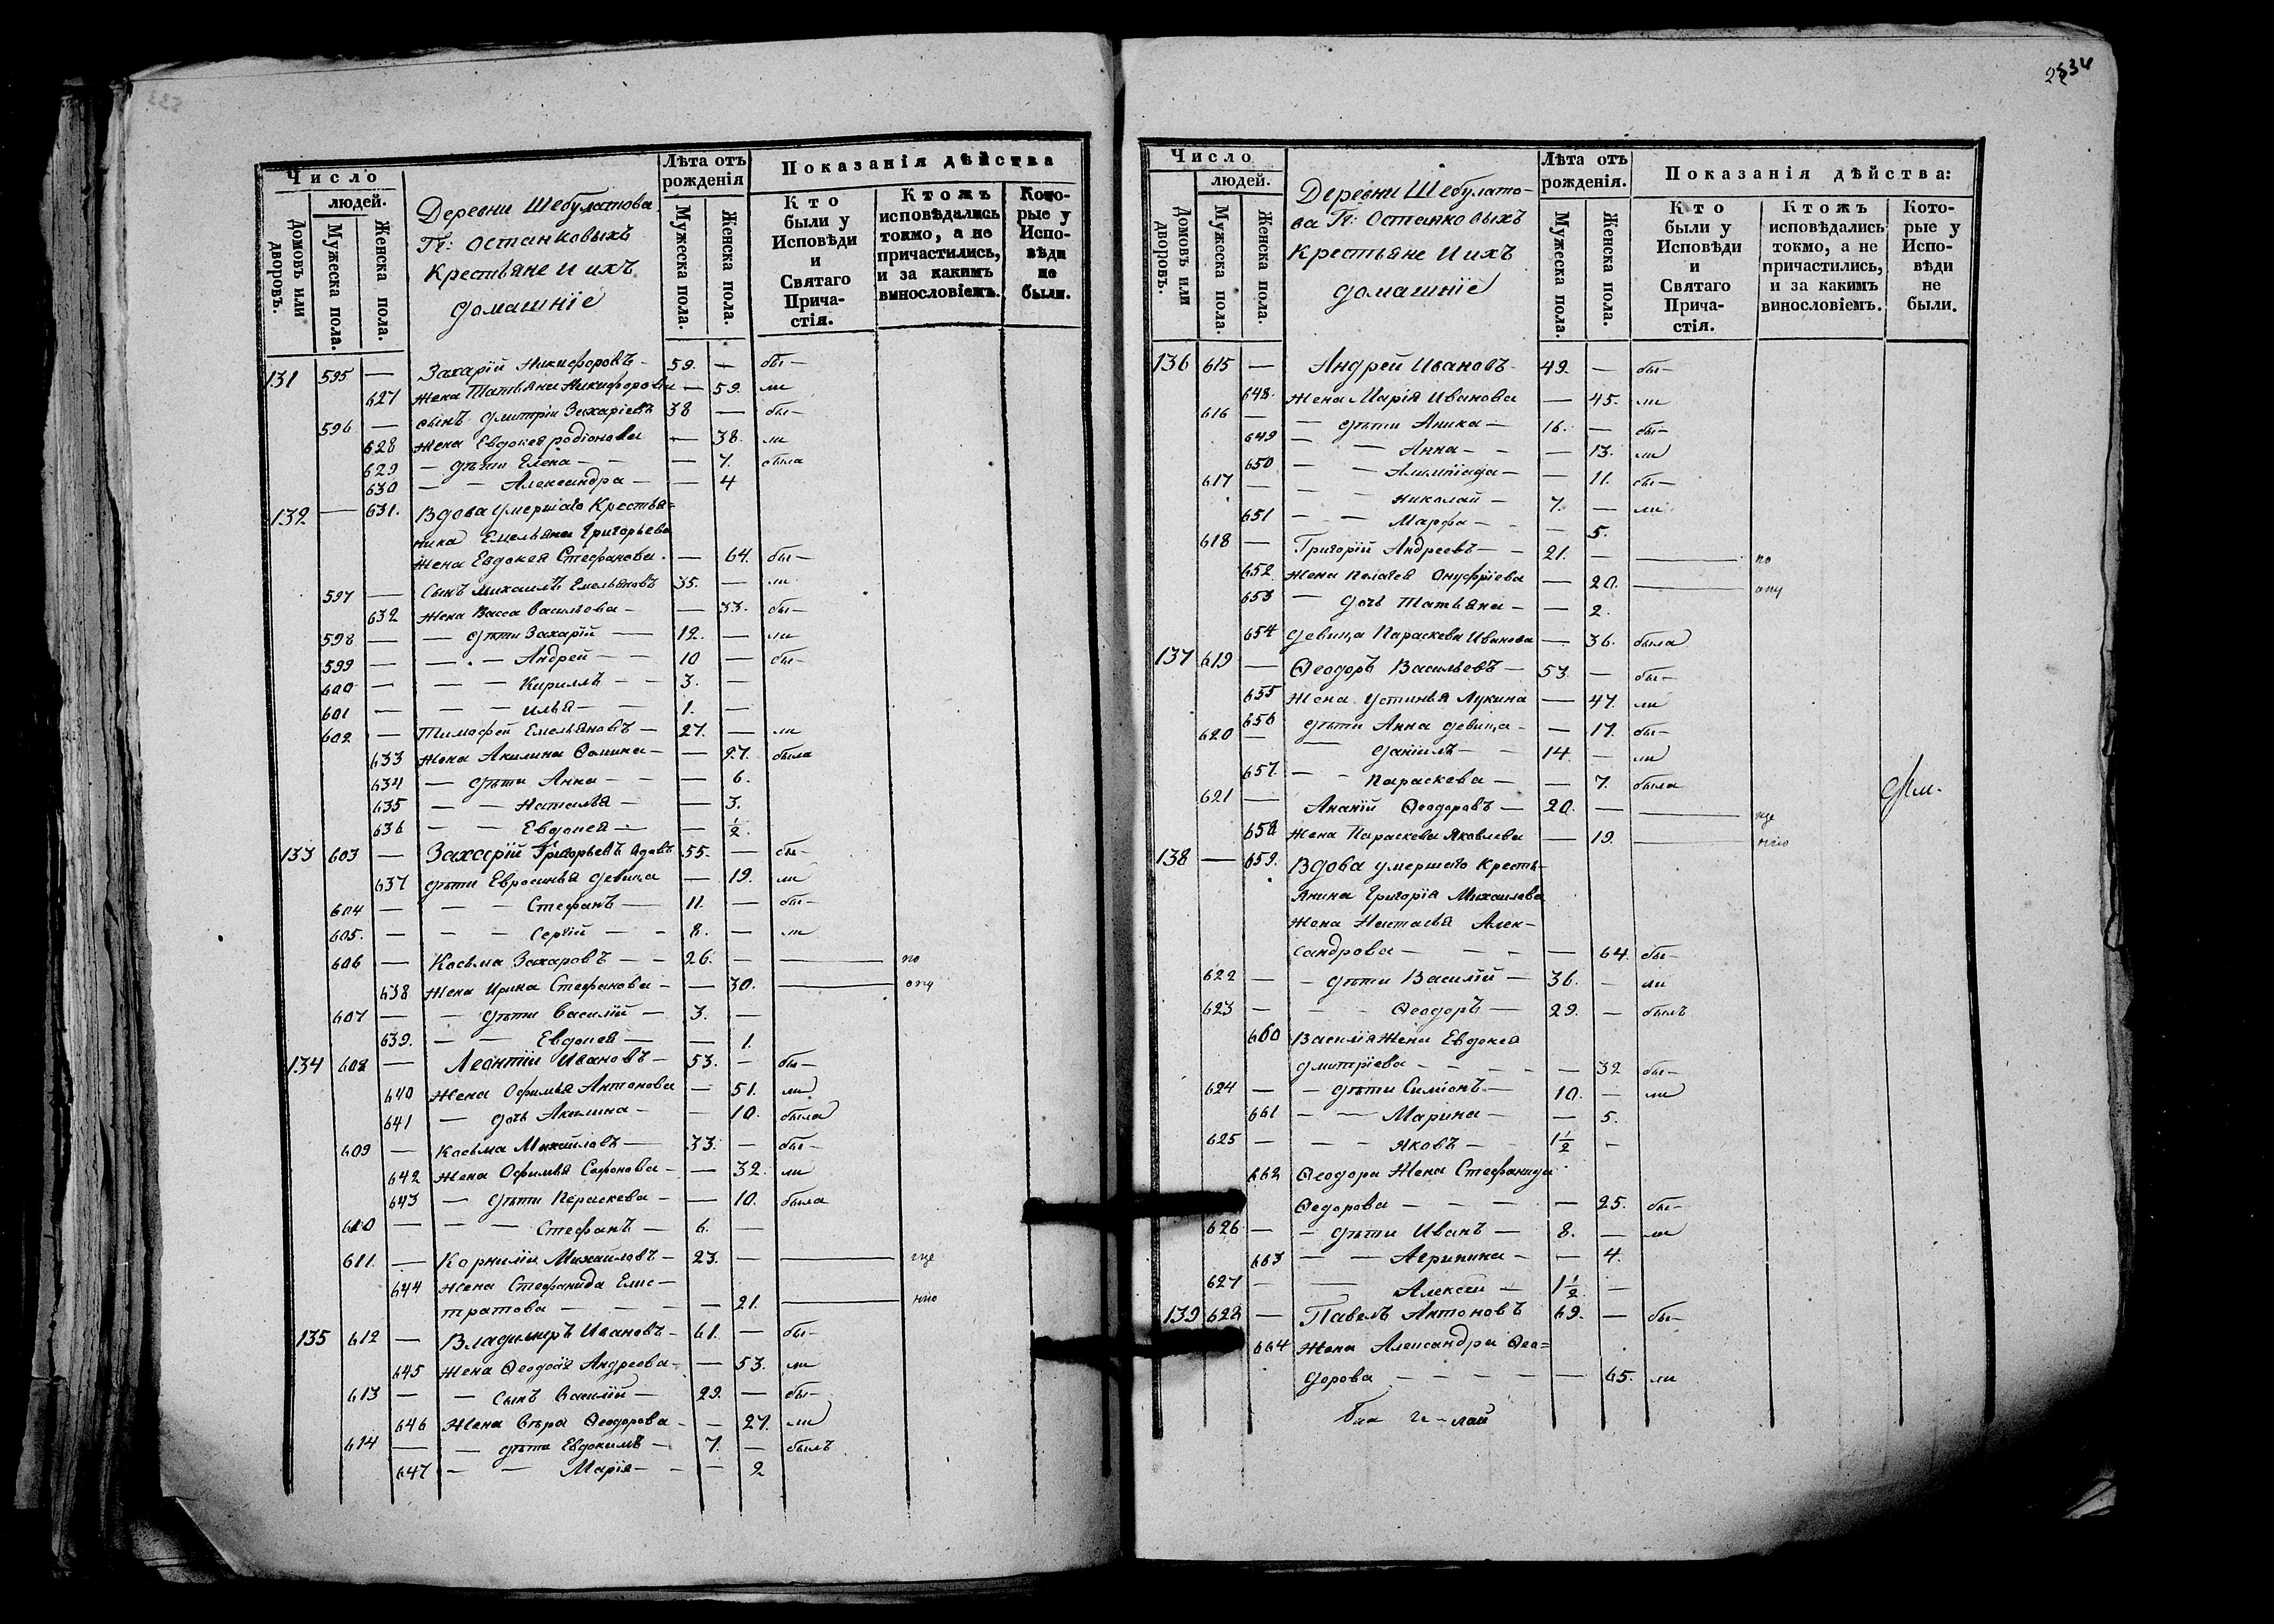 Число
людей.
Домовъ или дворовъ.
Мужеска пола.
Женска пола.
Деревни Шебулатова
Гг: Останковыхъ
Крестьяне и ихъ
домашніе
Лѣта отъ рожденія
Мужеска пола.
Женска пола.
Показанія дѣйства
Кто были у Исповѣди и Святаго Прича-стія.
Ктожъ исповѣдались токмо, а не причастились, и за какимъ винословіемъ.
Кото-рые у Испо-вѣди не были.
131 595 — Захарій Никифоровъ — 59. — бы—
627 жена Татьяна Никифорова — 59. ли
596 — сынъ Дмитрій Захаріевъ 38 — бы—
628 жена Евдокея Родіонова — 38. ли
629 — дѣти Елена — — — 7. была
630 — — Александра — — 4
132 — 631. Вдова умершаго Крестья=
нина Емельяна Григорьева
жена Евдокея Стефанова. — 64. бы—
597 — Сынъ Михаилъ Емельяновъ 35. — ли
632 жена Васса Васильева — — 33. бы—
598 — — дѣти Захарій — 12. — ли
599 — — — Андрей — — 10 — бы—
600 — — — Кириллъ — — 3. —
601 — — — Илья — — 1. —
602 — Тимофей Емельяновъ — 27. — ли
633 жена Акилина Фомина — — 27. была
634 — дѣти Анна — — — 6.
635 — — Наталья — — 3.
636 — — Евдокея — — 1/2.
133 603 — Захарій Григорьевъ вдовъ 55. — бы—
637 дѣти Евросинья девица — 19. ли
604 — — — Стефанъ — 11. — бы—
605. — — — Сергій — — 8. — ли
606 — Косьма Захаровъ — — 26. — — по
638 жена Ирина Стефанова — — 30. — опу
607 — — дѣти Василій — 3. —
639. — — Евдокея — — 1.
134 608 — Леонтій Ивановъ — 53. — бы—
640 жена Офимья Антонова — 51. ли
641 — дочь Акилина — — 10. была
609 — Косьма Михайловъ — 33. — бы—
642 жена Офимья Софонова — — 32. ли
643 — дѣти Параскева — — 10. была
610 — — — Стефанъ — 6. —
611. — Корнилій Михаиловъ — 23. — — ще
644 жена Стефанида Елис—
тратова — — — — 21. — нію
135 612 — Владимиръ Ивановъ — 61. — бы—
645 жена Ѳеодосія Андреева — — 53. ли
613 — — сынъ Василій — 29. — бы—
646 жена Вѣра Ѳеодорова — — 27. ли
614 — — дѣти Евдокимъ — 7. — былъ
647 — — Марія — — — 2
Число
людей.
Домовъ или дворовъ.
Мужеска пола.
Женска пола.
Деревни Шебулато—
ва Гг: Останковыхъ
Крестьяне и ихъ
домашніе
Лѣта отъ рожденія.
Мужеска пола.
Женска пола.
Показанія дѣйства:
Кто были у Исповѣди и Святаго Прича-стія.
Ктожъ исповѣдались токмо, а не причастились, и за какимъ винословіемъ.
Кото-рые у Испо-вѣди не были.
136 615 — Андрей Ивановъ — 49. — бы—
648. жена Марія Иванова — 45. ли
616 — — дѣти Аника — 16. — бы—
649 — — Анна — — — 13. ли
650 — — Алимпіада — — 11. бы—
617 — — — Николай — 7. — ли
651 — — Марфа — — — 5.
618 — Григорій Андреевъ — — 21. — — по
652 жена Пелагея Онуфріева — 20. — опу
653 — дочь Татьяна — — 2.
654 девица Параскева Иванова — 36. была
137 619 — Ѳеодоръ Васильевъ — 53. — бы—
655 жена Устинья Лукина — 47. ли
656 дѣти Анна девица — — 17. бы—
620 — — Даніилъ — — 14. — ли
657. — — Параскева — — 7. была
621 — Ананій Ѳеодоровъ — 20. — — ще
658 жена Параскева Яковлева — 19. — нію
138 — 659. Вдова умершаго Кресть—
янина Григорія Михаилова
жена Настасья Алек—
сандрова — — — — — 64. бы—
622 — — дѣти Василій — 36. — ли
623 — — — Ѳеодоръ — 29. — былъ
660 Василія жена Евдокея
Дмитріева — — — — — 32 бы—
624 — — дѣти Симіонъ — 10. — ли
661 — — Марина — — 5.
625 — — — Яковъ — — 1 1/2 —
662 Ѳеодора жена Стефанида
Ѳедорова — — — — — 25. бы—
626 — — дѣти Иванъ — 8. — ли
663 — — Агрипина — — 4.
627 — — Алексей — 1 1/2 —
139 628 — Павелъ Антоновъ 69. — бы—
664 жена Александра Ѳео=
дорова — — — — — 65. ли